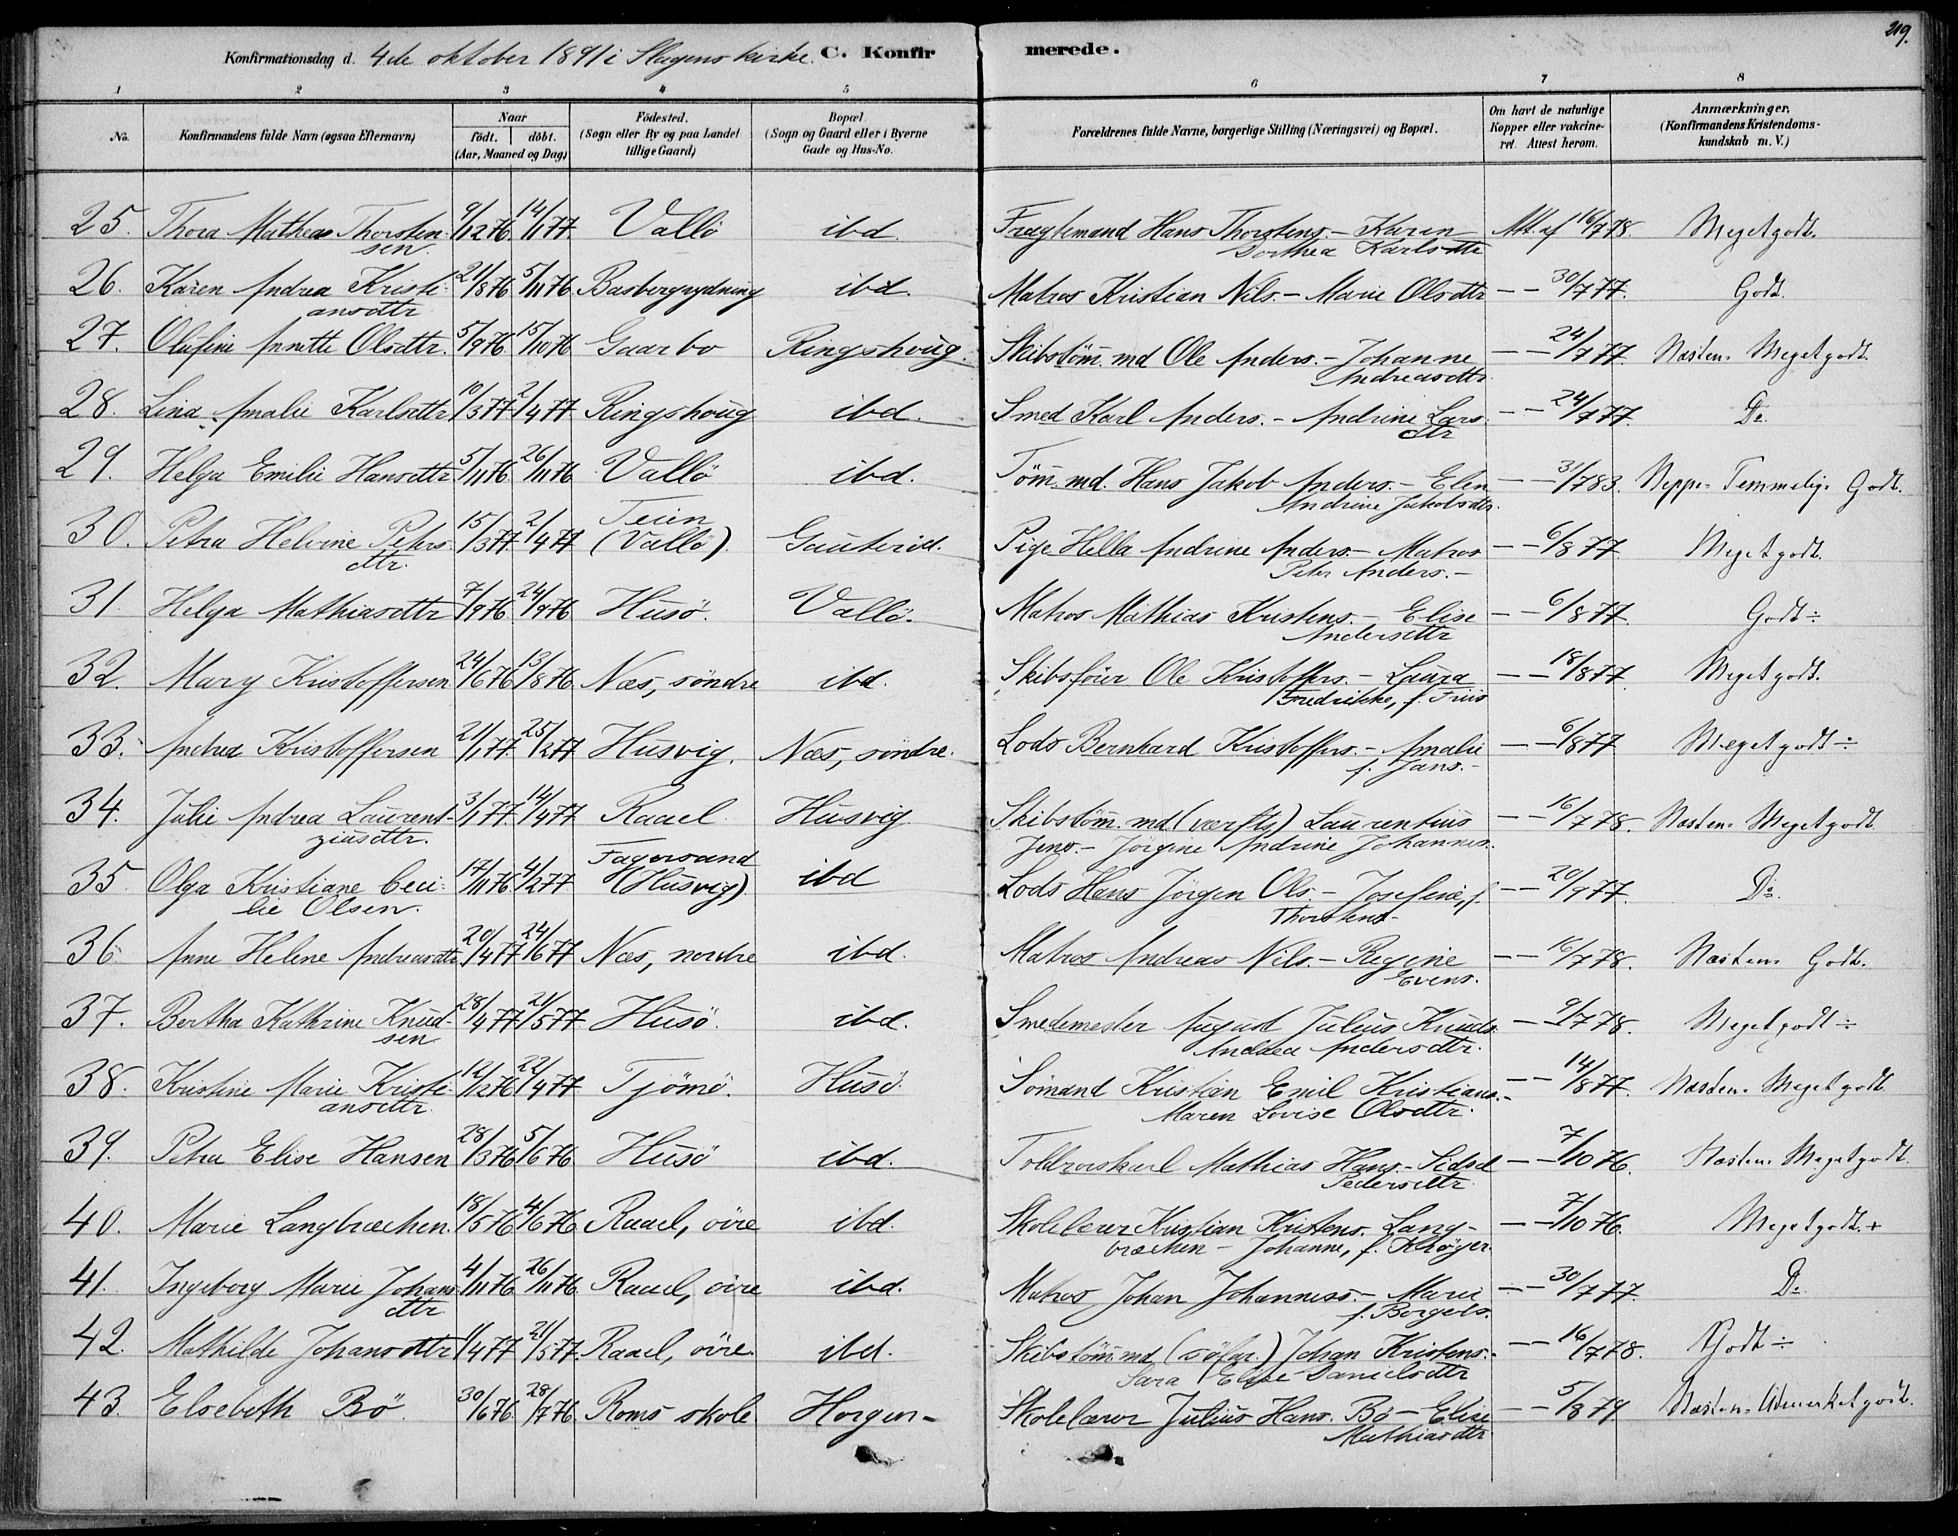 219.
Konfirmationsdag d. 4de oktober 1891 i Slagens kirke. C. Konfirmerede.
1 2 3 4 5 6 7 8
No. Konfirmandens fulde Navn (ogsaa Efternavn) Naar födt. döbt. (Aar, Maaned og Dag) Födested. (Sogn eller By og paa Landet tillige Gaard) Bopæl. (Sogn og Gaard eller i Byerne Gade og Hus-No. Forældrenes fulde Navne, borgerlige Stilling (Næringsvei) og Bopæl. Om havt de naturlige Kopper eller vakcineret. Attest herom. Anmærkninger. (Konfirmandens Kristendomskundskab m. V.)
25. Thora Mathea Thorstensen. 9/12 76. 14/1 77. Vallö ibd. Fragtemand Hans Thorstens. – Karen Dorthea Karlsdtr Att. af 16/9 78. Meget godt.
26. Karen Andrea Kristiansdtr. 21/8 76 5/11 76 Basbergrydning ibd. Matros Kristian Nils. – Marie Olsdtr – – 30/7 77. Godt.
27. Olufine Annette Olsdtr. 5/9 76. 15/10 76 Gaarbo Ringshoug. Skibstöm. md Ole Anders. – Johanne Andreasdtr. – – 24/7 77. Næsten Meget godt.
28. Lina Amalie Karlsdtr 10/3 77. 2/4 77. Ringshoug ibd. Smed Karl Anders. – Andrine Larsdtr – – 24/7 77. Do.
29. Helga Emilie Hansdtr 5/11 76. 26/11 76. Vallö ibd. Töm. md. Hans Jakob Anders. – Elen Andrine Jakobsdtr. – – 31/7 83. Neppe Temmelig Godt.
30. Petra Helvine Petersdtr. 15/3 77. 2/4 77 Teien (Vallö). Gauterød. Pige Hella Andrine Anders. – Matros Peter Anders. – – – 6/8 77. Meget godt.
31. Helga Mathiasdtr 7/9 76. 24/9 76. Husö. Vallö. Matros Mathias Kristens. – Elise Andersdtr – – 6/8 77. Godt ÷
32. Mary Kristoffersen 24/6 76 13/8 76. Næs, söndre ibd. Skibsförer Ole Kristoffers. – Laura Fredrikke, f. Friis – – 18/8 77. Meget godt.
33. Andrea Kristoffersen 21/1 77. 25/2 77 Husvig. Næs, söndre. Lods Bernhard Kristoffers. – Amalie f. Jans. – – – 6/8 77 Meget godt ÷
34. Julie Andrea Laurentziusdtr. 3/1 77. 14/4 77 Raael. Husvig Skibstöm. md (værfts) Laurentius Jens. – Jörgine Andrine Johannes. – – 16/7 78. Næsten Meget godt
35. Olga Kristiane Cecilie Olsen. 17/11 76. 4/2 77 Fagersand (Husvig). ibd Lods Hans Jörgen Ols. – Josefine, f. Thorstens – – – 20/9 77. Do.
36. Anne Helene Andreasdtr 20/4 77 24/6 77 Næs, nordre ibd. Matros Andreas Nils. – Regine Evens. – – 16/7 78. Næsten Godt.
37. Bertha Kathrine Knudsen 28/4 77 21/5 77 Husö. ibd. Smedemester August Julius Knuds. Andrea Andersdtr. – – 9/7 78. Meget godt ÷
38. Kristine Marie Kristiansdtr. 12/12 76 22/4 77 Tjömö. Husö. Sömand Kristian Emil Kristians. – Maren Lovise Olsdtr. – – 14/8 77. Næsten Meget godt
39. Petra Elise Hansen 28/3 76 5/6 76 Husö ibd. Toldrorskarl Mathias Hans. – Sidsel Pedersdtr. – – 7/10 76. Næsten Meget godt.
40. Marie Langbræchen. 18/5 76 4/6 76 Raael, övre ibd. Skolelærer Kristian Kristens. Langbræchen – Johanne, f. Kröger. – – 7/10 76. Meget godt. +
41. Ingeborg Marie Johansdtr 4/11 76. 26/11 76. Raael, övre ibd. Matros Johan Johanness. – Marie f. Borgels. – – 30/7 77. Do.
42. Mathilde Johansdtr 1/4 77 21/5 77. Raael, övre. ibd. Skibstöm. md (söfar.) Johan Kristens. – Sara Elise Danielsdtr – – 16/7 78. Godt ÷
43. Elsebeth Bö. 30/6 76. 28/7 76. Roms skole Horgen – Skolelærer Julius Hans. Bö – Elise Mathiasdtr – – 5/8 79 Næsten Udmerket godt.